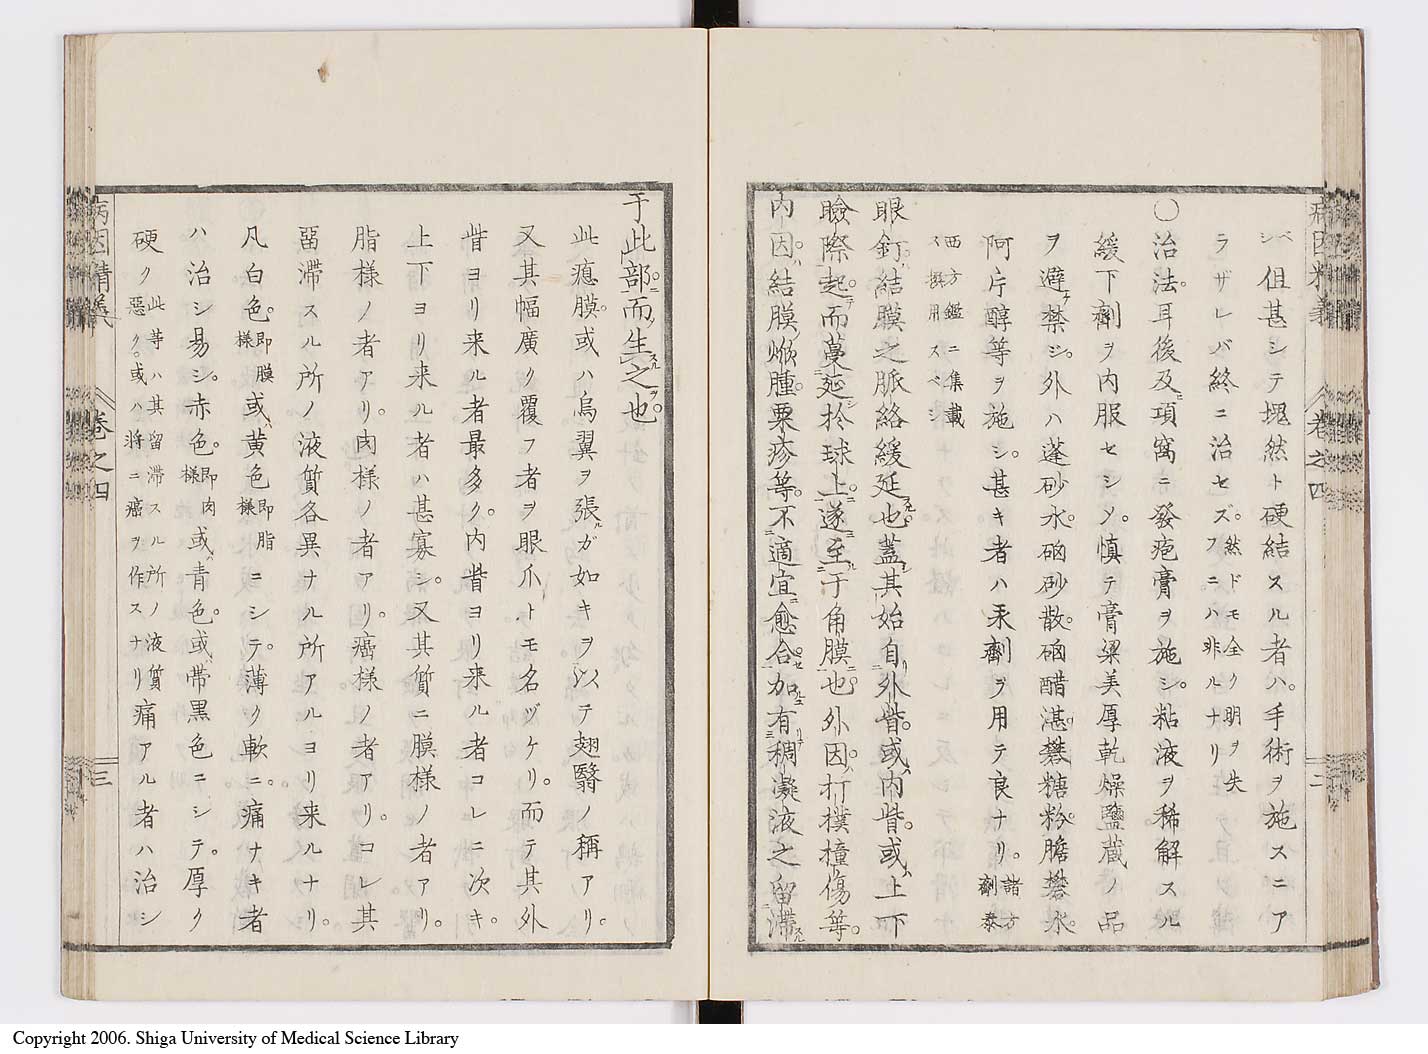 病因精義 卷之四 二
シ但甚シテ塊然ト硬結スル者ハ。手術ヲ施スニア
ラザレバ終ニ治セズ。然ドモ全ク明ヲ失フニハ非ルナリ
〇治法。耳後及項窩ニ發疱膏ヲ施シ。粘液ヲ稀解スル
緩下劑ヲ内服セシメ。慎テ膏粱美厚乾燥鹽蔵ノ品
ヲ避ケ禁シ。外ハ蓬砂水。硇砂散。硇醋湛礬糖粉。膽礬水。
阿片醇等ヲ施シ。甚キ者ハ汞劑ヲ用テ良ナリ。諸方劑泰
西方鑑ニ集載ス撰用スベシ
眼釘ハ結膜之脈絡緩延也蓋其始自リ外眥。或ハ内眥。或ハ上下
瞼際起テ而蔓延シ於球上ニ。遂ニ至ル于角膜ニ也。外因ハ打撲撞傷等。
内因ハ結膜焮腫粟疹等。不適宜愈合セ。加ルニ有リテ稠凝液之留滞スル
于此部ニ而生スル之ヲ也。
此瘜膜。或ハ烏翼ヲ張ルガ如キヲ以テ翅翳ノ稱アリ。
又其幅廣ク覆フ者ヲ眼爪トモ名ヅケリ。而テ其外
眥ヨリ来ル者最多ク。内眥ヨリ来ル者コレニ次キ。
上下ヨリ来ル者ハ甚寡シ。又其質ニ膜様ノ者アリ。
脂様ノ者アリ。肉様ノ者アリ。癌様ノ者アリ。コレ其
畱滞スル所ノ液質各異ナル所アルヨリ来ルナリ。
凡白色。即膜様或ハ黄色即脂様ニシテ。薄ク軟ニ。痛ナキ者
ハ治シ易シ。赤色。即肉様或ハ青色。或ハ帯黒色ニシテ。厚ク
硬ク此等ハ其留滞スル所ノ液質悪ク。或ハ将ニ癌ヲ作スナリ痛アル者ハ治シ
病因精義 卷之四 三
Copyright 2006. Shiga University of Medical Science Library